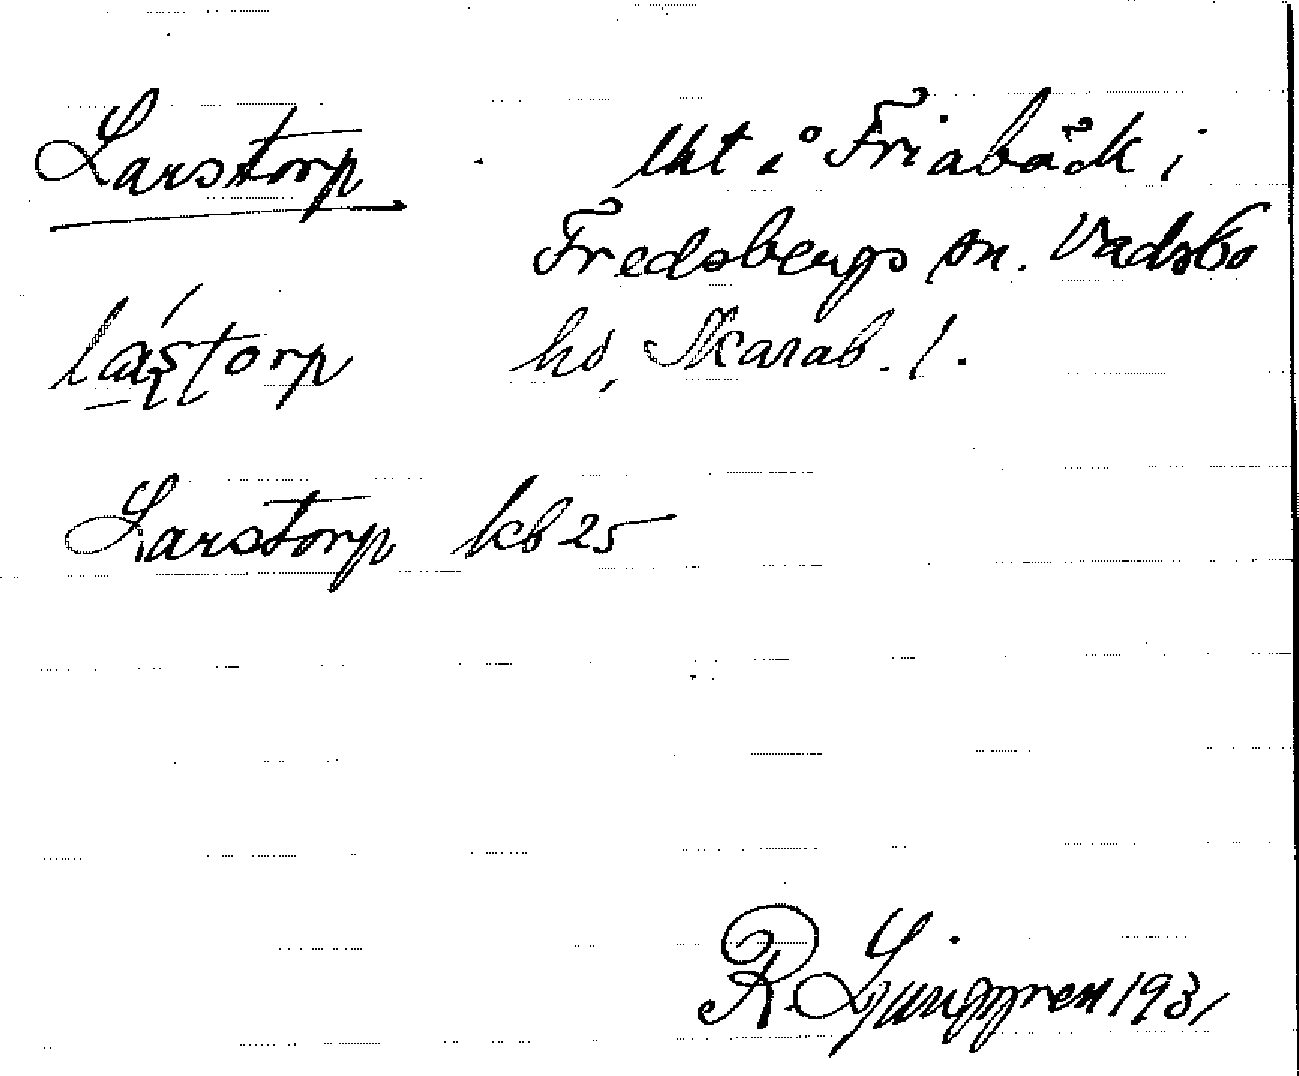 Larstorp
lht i Friabäck i
Fredsbergs sn. Vadsbo
hd, Skarab. l.
lástorp
Larstorp kb 25
R. Ljunggren 1931